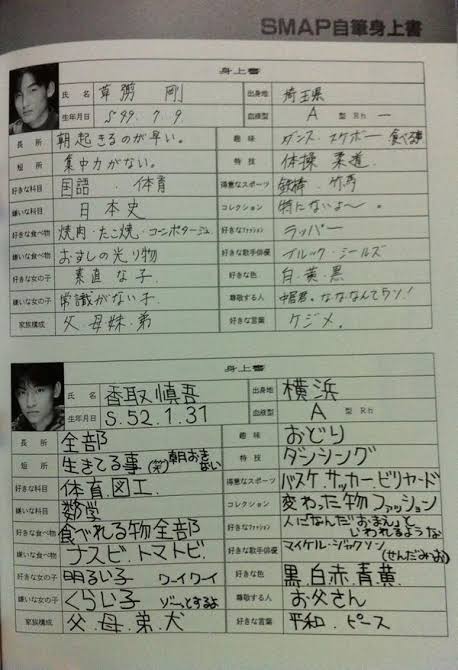 SMAP自筆身上書
身上書
氏名 草彅 剛 出身地 埼玉県
生年月日 S.49.7.9 血液型 A 型 RH ー
長所 朝起きるのが早い。 趣味 ダンス・スケボー・食べる事
短所 集中力がない。 特技 体操 柔道
好きな科目 国語・体育 得意なスポーツ 鉄棒・竹馬
嫌いな科目 日本史 コレクション 特にないよ〜。
好きな食べ物 焼肉・たこ焼・コーンポタージュ 好きなファッション ラッパー
嫌いな食べ物 おすしの光り物 好きな歌手俳優 ブルック・シールズ
好きな女の子 素直な子 好きな色 白・黄・黒
嫌いな女の子 常識がない子 尊敬する人 中居君。なななんてウソ!
家族構成 父・母・妹・弟 好きな言葉 ケジメ。
身上書
氏名 香取慎吾 出身地 横浜
生年月日 S.52.1.31 血液型 A 型 RH
長所 全部 趣味 おどり
短所 生きてる事(笑) 朝おきない 特技 ダンシング
好きな科目 体育.図工. 得意なスポーツ バスケ.サッカー.ビリヤード
嫌いな科目 数学 コレクション 変わった物ファッション
好きな食べ物 食べれる物全部 好きなファッション 人に「なんだおまえ」といわれるような
嫌いな食べ物 ナスビ.トマトビ. 好きな歌手俳優 マイケル・ジャクソン (せんだみつお)
好きな女の子 明るい子 ワーイワイ 好きな色 黒.白.赤.青.黄.
嫌いな女の子 くらい子 ゾーッとするよ 尊敬する人 お父さん
家族構成 父.母.弟.犬 好きな言葉 平和.ピース